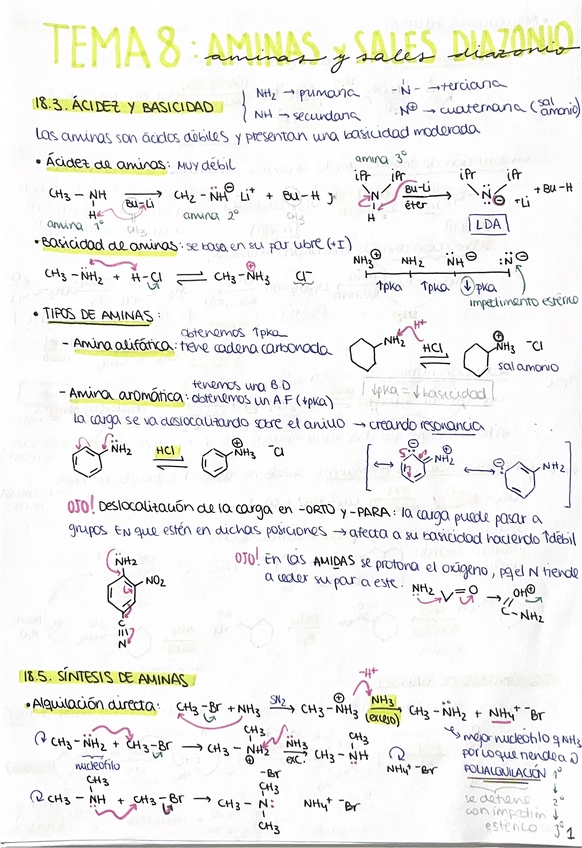 TEMA 8: AMINAS Y SALES DIAZONIO
aminas y sales diazonio
18.3. ÁCIDEZ Y BASICIDAD
NH2 → primaria -N- → terciaria
NH → secundaria N⊕ → cuaternaria (sal amonio)
Las aminas son ácidos débiles y presentan una basicidad moderada
• Ácidez de aminas: Muy débil
amina 3º
CH3 - NH → CH2 - NH⊖ Li+ + Bu-H
H Bu-Li
amina 1º amina 2º
iPr iPr Bu-Li iPr iPr + Bu-H
N éter N⊖ +Li
H
LDA
• Basicidad de aminas: se basa en su par libre (+I)
CH3 - NH2 + H-Cl ⇌ CH3 - NH3 Cl-
NH3⊕ NH2 NH⊖ N⊖
↑pka ↑pka ↓pka
impedimento estérico
• TIPOS DE AMINAS:
obtenemos ↑pka
- Amina alifática: tiene cadena carbonada
NH2 H+ HCl NH3 -Cl
sal amonio
tenemos una B.D
- Amina aromática: obtenemos un A.F (↓pka)
↓pka = ↓basicidad
la carga se va deslocalizando sobre el anillo → creando resonancia
NH2 HCl NH3 -Cl
NH2 NH2
OJO! Deslocalitación de la carga en -ORTO y -PARA: la carga puede pasar a
grupos EN que estén en dichas posiciones → afecta a su basicidad haciendo ↑débil
NH2
NO2
C
N
OJO! En las AMIDAS se protona el oxígeno, pq el N tiende
a ceder su par a este.
NH2 O → OH⊕
C-NH2
18.5. SÍNTESIS DE AMINAS
• Alquilación directa: CH3-Br + NH3 SN2 CH3 - NH3 -H+ NH3 (exceso) CH3 - NH2 + NH4+ -Br
CH3 - NH2 + CH3-Br → CH3 - NH2 NH3 exc. CH3 - NH NH4+ -Br
nucleófilo CH3 CH3
-Br
CH3 - NH + CH3-Br → CH3 - N: NH4+ -Br
CH3 CH3 CH3
mejor nucleófilo q NH3
por lo que tiende a
POLIALQUILACIÓN
se detiene
con impedim
estérico
1º
2º
3º
1